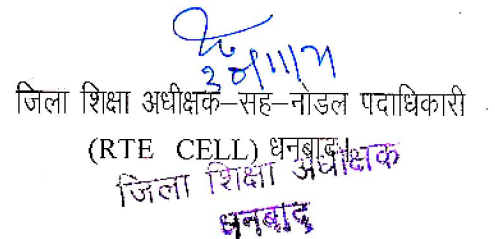 जिला शिक्षा अधीक्षक–सह–नोडल पदाधिकारी
(RTE CELL) धनबाद।
जिला शिक्षा अधीक्षक
धनबाद